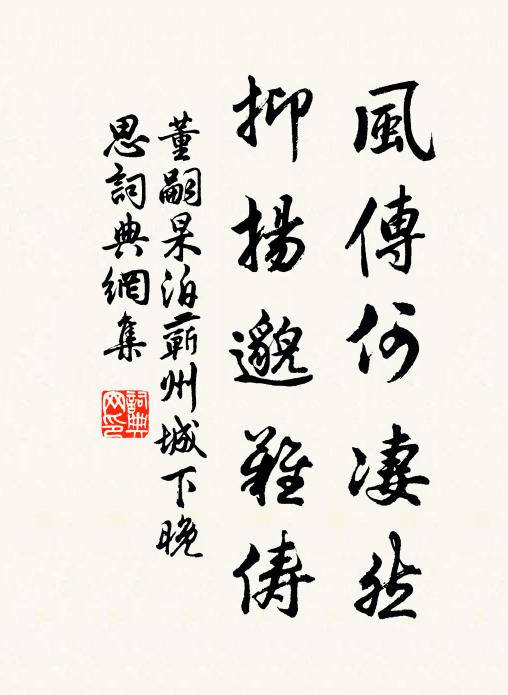 風傳何凄然
抑揚邈難儔
董嗣杲泊蘄州城下晚
思詞典網集
詞典
网印